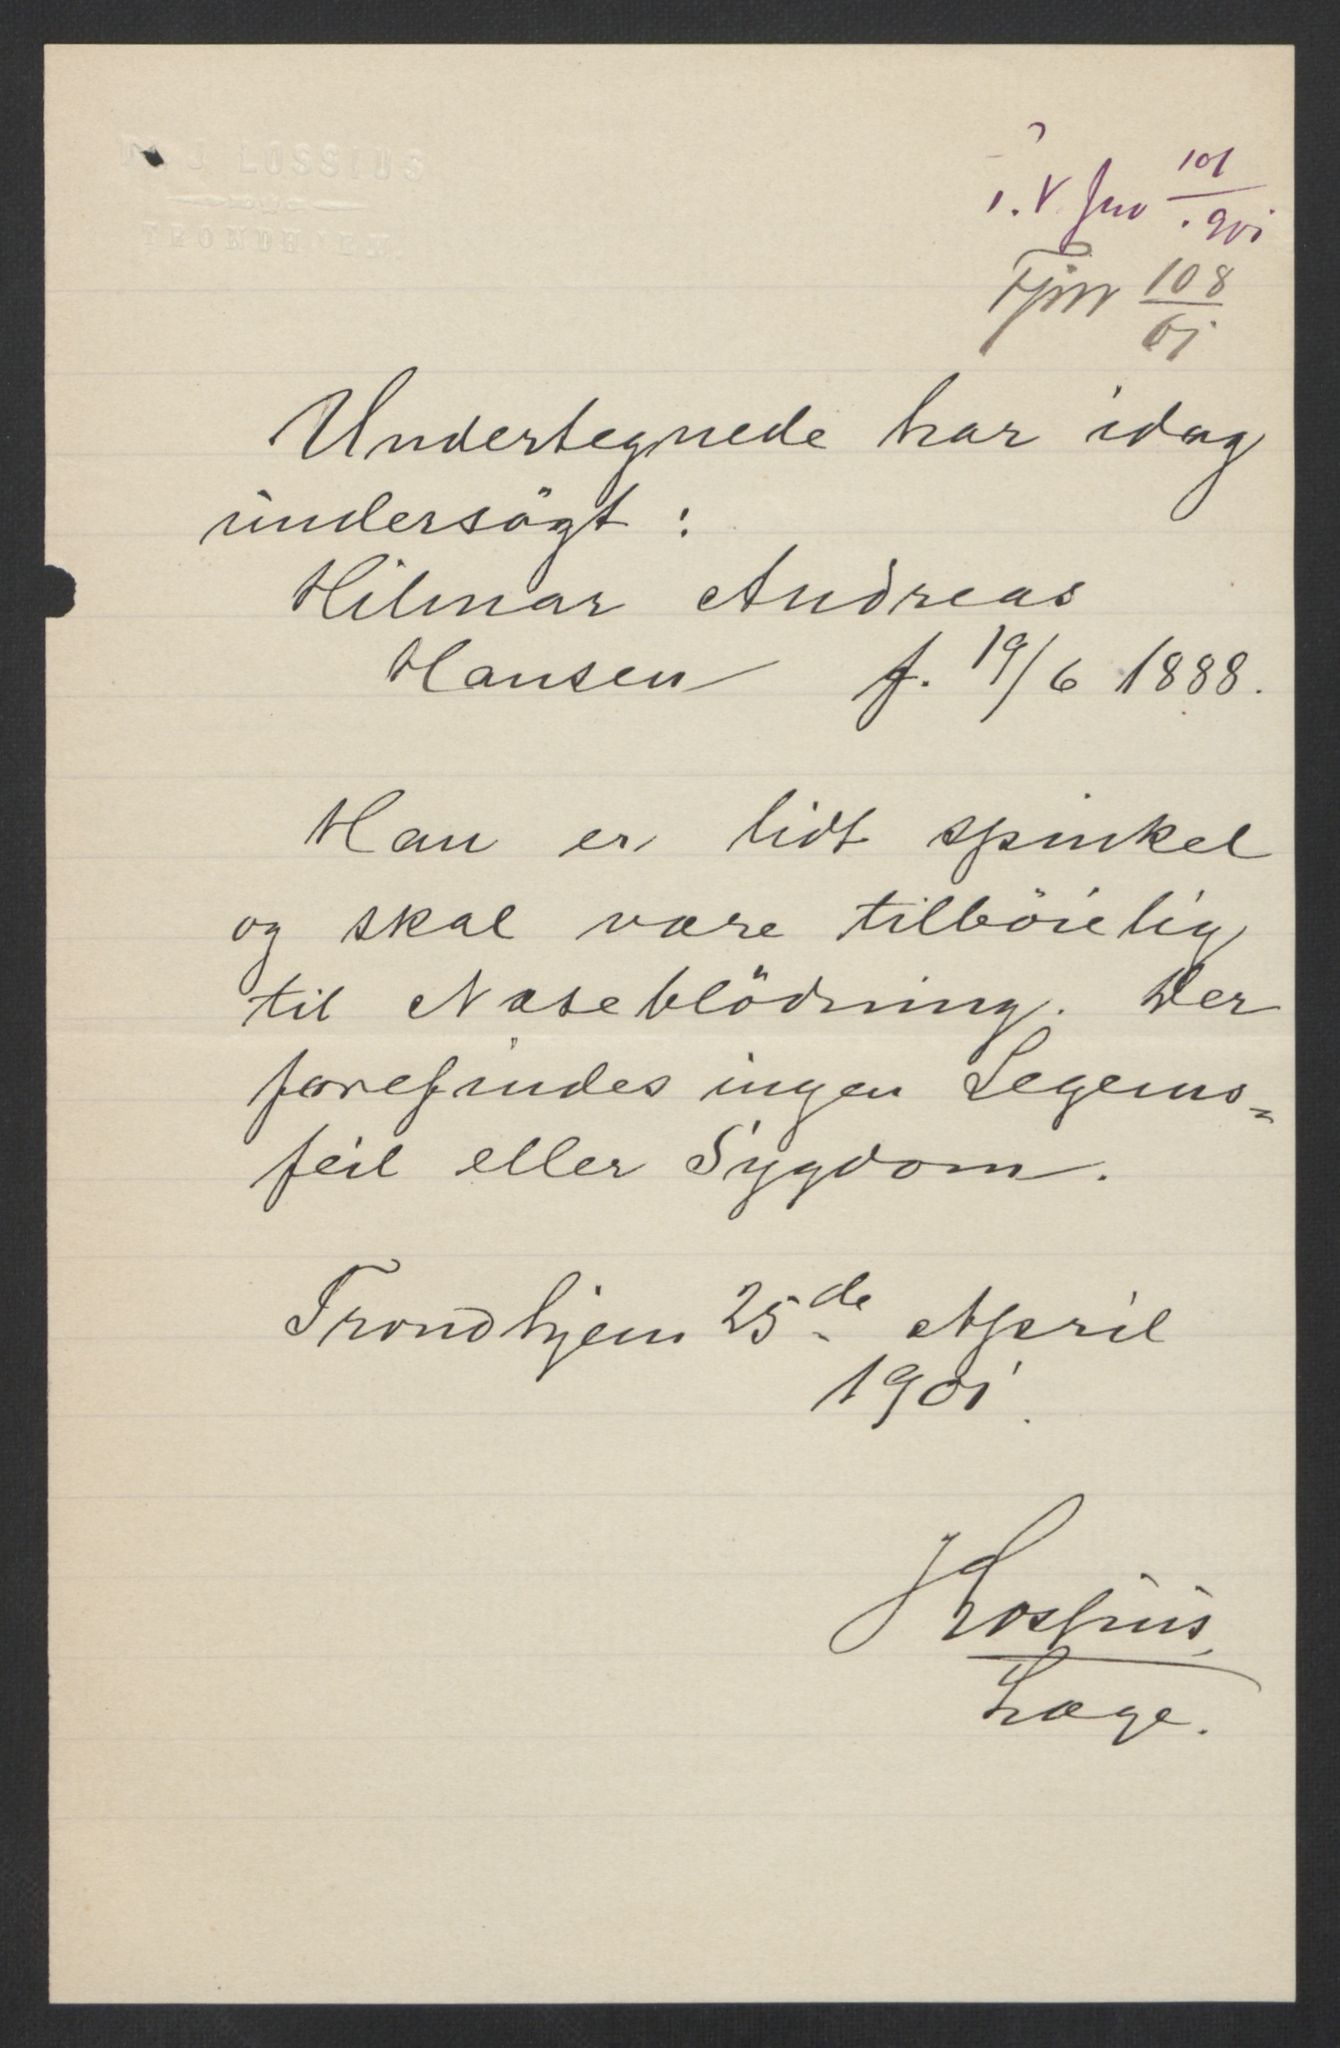 J LOSSIUS
TRONDHJEM
101
901
108
01
Undertegnede har idag
undersögt :
Hilmar Andreas
Hansen f. 19/6 1888.
Han er lidt spinkel
og skal være tilböielig
til Næseblödning. Der
forefindes ingen Legems=
feil eller Sygdom.
Trondhjem 25de April
1901.
J Lossius
Læge.